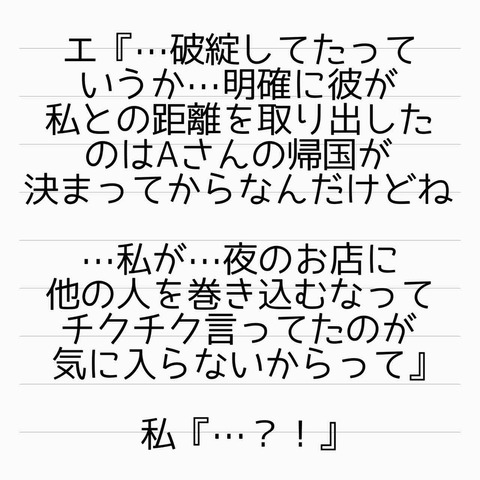 エ『…破綻してたって
いうか…明確に彼が
私との距離を取り出した
のはAさんの帰国が
決まってからなんだけどね
…私が…夜のお店に
他の人を巻き込むなって
チクチク言ってたのが
気に入らないからって』
私『…？！』